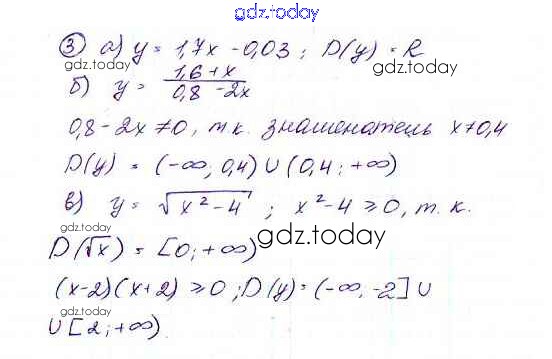 gdz.today
③ а) y = 1,7x - 0,03; D(y) = R
gdz.today gdz.today
б) y = (1,6 + x)/(0,8 - 2x)
0,8 - 2x ≠ 0, т.к. знаменатель x ≠ 0,4
D(y) = (-∞, 0,4) ∪ (0,4; +∞)
gdz.today
в) y = √(x² - 4); x² - 4 ≥ 0, т.к.
gdz.today
D(√x) = [0; +∞)
(x-2)(x+2) ≥ 0; D(y) = (-∞, -2] ∪
gdz.today gdz.today
∪ [2; +∞)